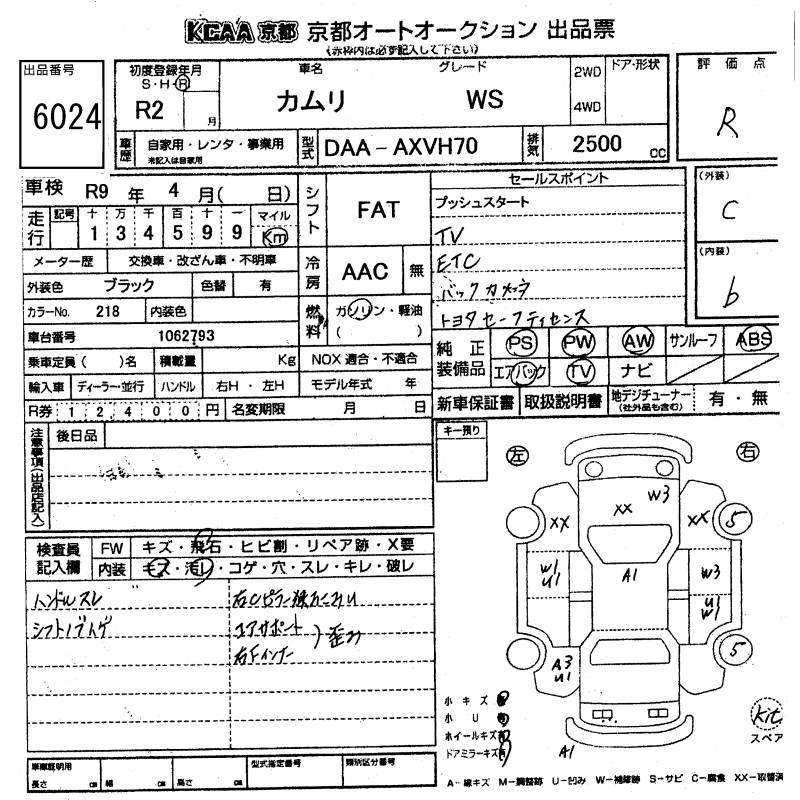 KCAA 京都 京都オートオークション 出品票
(赤枠内は必ず記入して下さい)
出品番号
6024
初度登録年月
S・H・R
R2
月
車名
カムリ
グレード
WS
2WD
4WD
ドア・形状
評価点
R
車歴
自家用・レンタ・事業用
未記入は自家用
型式
DAA-AXVH70
排気
2500
cc
車検 R9 年 4 月( 日)
走行
記号 十 万 千 百 十 一 マイル
1 3 4 5 9 9 Km
シフト
FAT
セールスポイント
プッシュスタート
TV
ETC
バックカメラ
トヨタセーフティセンス
(外装)
C
(内装)
b
メーター歴 交換車・改ざん車・不明車
冷房
AAC
無
外装色 ブラック 色替 有
カラーNo. 218 内装色
燃料
ガソリン・軽油
( )
車台番号 1062793
乗車定員( )名 積載量 Kg
NOX 適合・不適合
輸入車 ディーラー・並行 ハンドル 右H・左H
モデル年式 年
R券 1 2,4 0 0 円 名変期限 月 日
純正装備品
PS PW AW サンルーフ ABS
エアバック TV ナビ
新車保証書 取扱説明書 地デジチューナー
(社外品も含む)
有・無
注意事項(出品店記入)
後日品
キー預り
左
右
W3
XX
XX
XX
5
W1
U1
A1
W3
U1
W1
A3
U1
5
検査員記入欄
FW キズ・飛石・ヒビ割・リペア跡・X要
内装 キズ・汚レ・コゲ・穴・スレ・キレ・破レ
ハンドルスレ
シフトノブハゲ
右Cピラー
コアサポート
右Fインナー
)歪み
小キズ
小U
ホイールキズ
ドアミラーキズ
A1
kit
スペア
車車証明用
長さ cm 幅 cm 高さ cm
型式指定番号
類別区分番号
A-線キズ M-調整跡 U-凹み W-補修跡 S-サビ C-腐食 XX-取替済